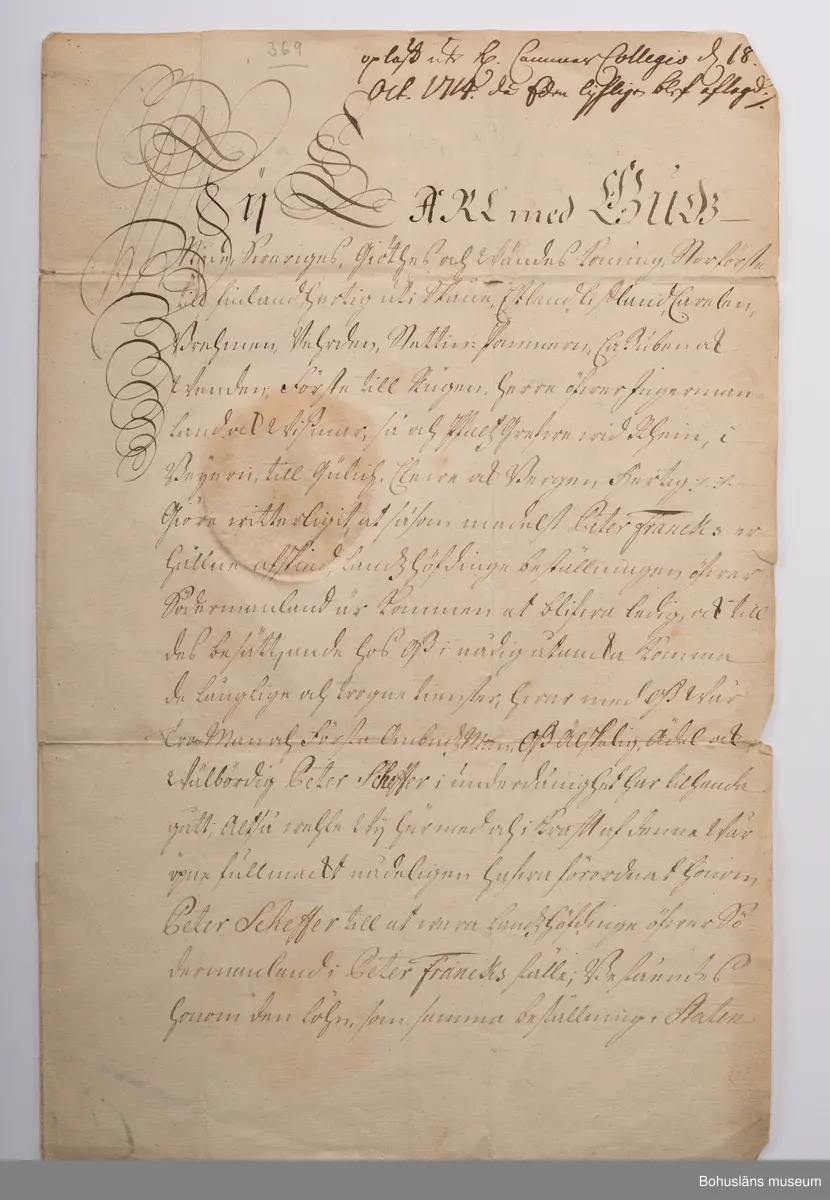 369
opläst uti K. Cammar Collegio d. 18.
Oct. 1714. då Eden tillika blef aflagd.
Wÿ CARL med GUDZ
Nåde, Sweriges, Giöthes och Wändes Konung, Storförste
till Finland, Hertig uti Skåne, Estland, Lifland, Carelen,
Brehmen, Vehrden, Stettin-Pommern, Cassuben och
Wenden, Förste till Rügen, Herre öfwer Ingerman-
land och Wissmar, så och Pfaltz Grefwe wid Rhein, i
Beÿern, till Gülich, Clewe och Bergen Hertig p.p.
Giöre witterligit, at såsom medelst Peter Francks er-
hållne afskied, Landzhöfdinge beställningen öfwer
Södermanland är kommen at blifwa ledig, och till
des besättjande hos Oss i nådig åtancka komma
de läuglige och trogne tienster, hwar med Oss Wår
tro Man och Första Ombudz Man, Oss Älskelig, Ädel och
Wälbördig Peter Scheffer i underdånighet har tilhanda
gått; Altså wehle Wÿ här med och i krafft af denne Wår
öpne fullmackt nådeligen hafwa förordnat honom,
Peter Scheffer till at wara Landzhöfdinge öfwer Sö-
dermanland i Peter Francks ställe; Beståendes
honom den löhn, som samma beställning i Staten
Bohusläns museum